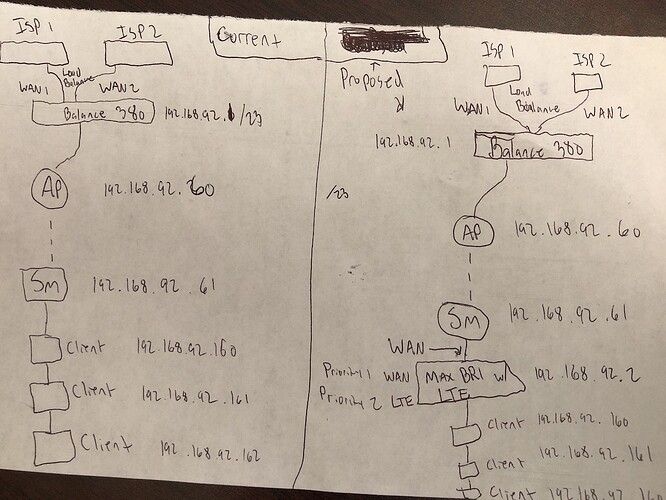 ISP 1
ISP 2
Load
Balance
WAN1
WAN2
Balance 380
192.168.92.1/23
AP
192.168.92.60
SM
192.168.92.61
Client
192.168.92.160
Client
192.168.92.161
Client
192.168.92.162
Current
Proposed
ISP 1
ISP 2
Load
Balance
WAN1
WAN2
192.168.92.1
Balance 380
/23
AP
192.168.92.60
SM
192.168.92.61
WAN
Priority 1 WAN
Priority 2 LTE
MAX BR1 w/
LTE
192.168.92.2
Client
192.168.92.160
Client
192.168.92.161
Client